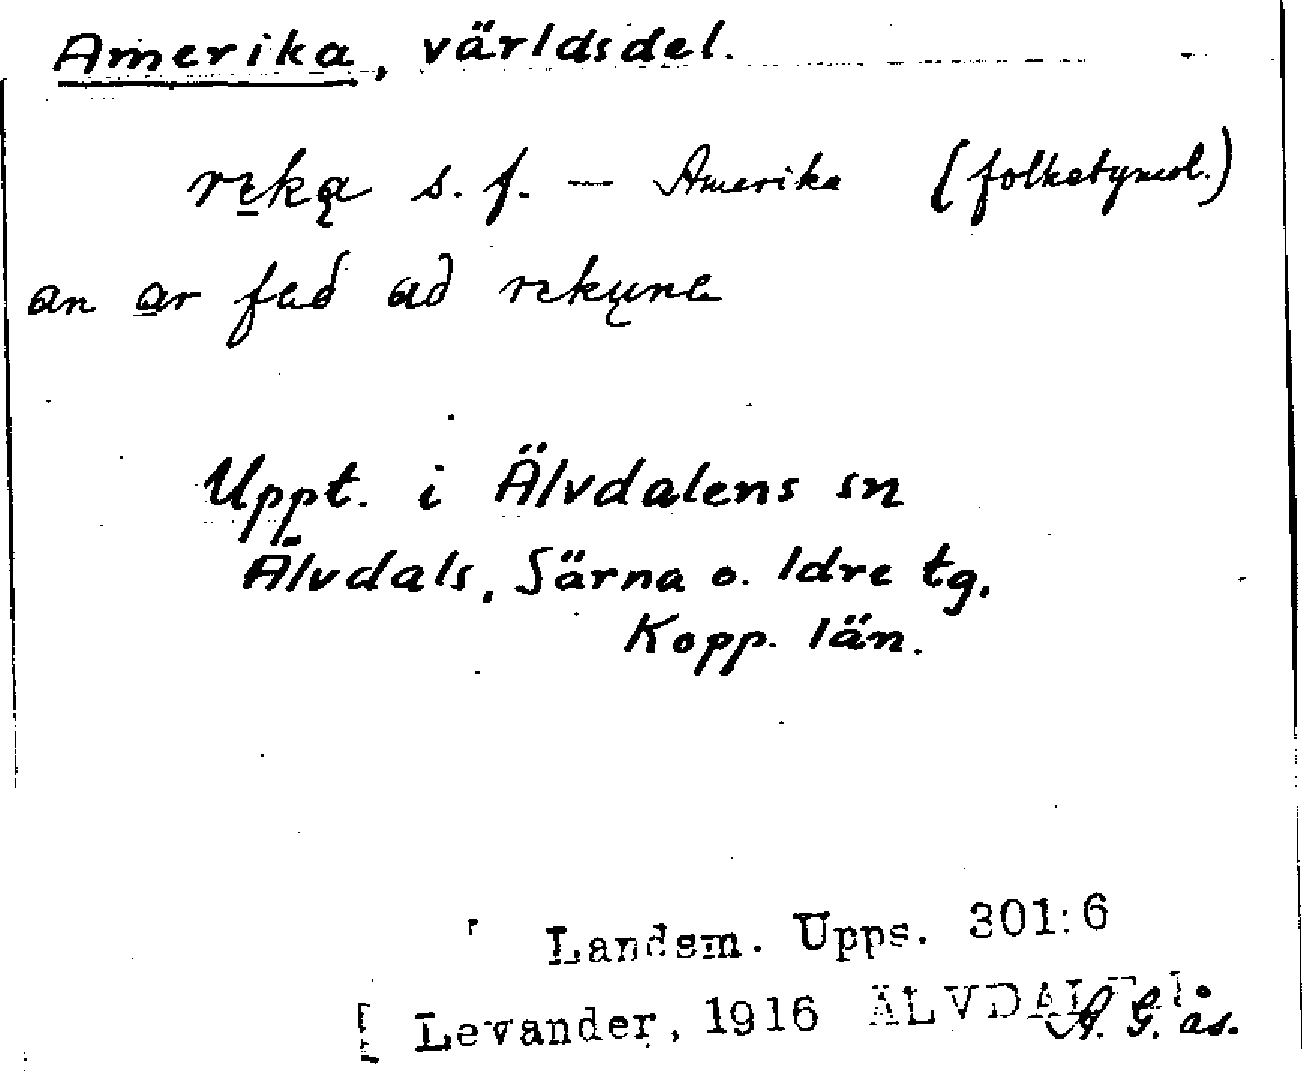 Amerika, världsdel.
rɛka̧ s. f. — Amerika (folketymol.)
an ar fað að rɛku̧na
Uppt. i Älvdalens sn
Älvdals, Särna o. Idre tg.
Kopp. län.
Landsm. Upps. 301:6
[ Levander, 1916 ÄLVDAL